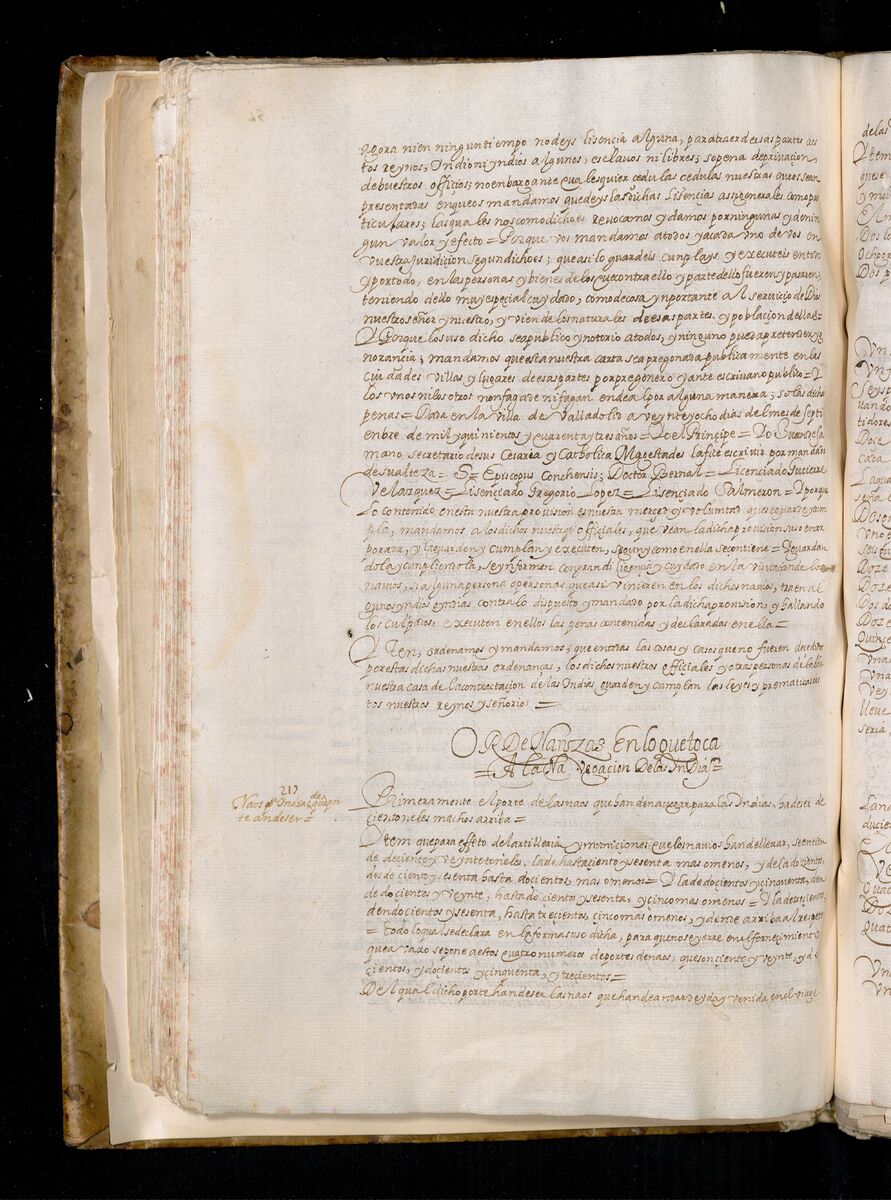 agora ni en ningun tiempo no deys lisencia alguna, para traer de esas partes a es
tos reynos, Indio ni yndios algunos, esclavos ni libres; so pena de privacion
de vuestros officios; no enbargante qualesquier cedulas nuestras que os sean
presentadas en que os mandamos que deys las dichas lisencias assi generales como par
ticulares; las quales nos como dicho es revocamos y damos por ningunas y de nin
gun valor y efecto = Porque vos mandamos a todos y a cada uno de vos en
vuestra juridicion segun dicho es; que asi lo guardeis cunplays y executeis en todo
y por todo, en las personas y bienes de los que contra ello y parte dello fueren y pasaren;
teniendo dello muy especial cuydado, como de cosa ynportante al servicio de Dios
nuestro señor y nuestro, y vien de los naturales de esas partes, y poblacion dellas
Y Porque lo suso dicho sea publico y notorio a todos, y ninguno pueda pretender yg
norancia; mandamos que esta nuestra carta sea pregonada publicamente en las
ciudades villas y lugares de esas partes por pregonero y ante escrivano publico = Y
los unos ni los otros non fagades ni fagan ende al por alguna manera; so las dichas
penas = Dada en la villa de Valladolid a veynte y ocho dias del mes de septi
enbre de mil y quinientos y quarenta y tres años = Yo el Principe = Yo Juan de sa
mano secretario de sus Cesaria y Catholica Magestades la fice escrivir por mandado
de su alteza = S = Episcopus Conchensis; Doctor Bernal = Licenciado Gutierre
Velazquez = Lisenciado Gregorio Lopez = Lisenciado Salmeron = Y porque
lo contenido en esta nuestra provision es nuestra merced y voluntad que se guarde y cum
pla, mandamos a los dichos nuestros officiales, que vean la dicha provision suso encor
porada, y la guarden y cumplan y executen, segun y como en ella se contiene = Y guardan
dola y cunpliendola, se ynformen con gran diligencia y cuydado en la visitacion de los
navios, si alguna persona o personas que asi vinieren en los dichos navios, traen al
gunos yndios o yndias contra lo dispuesto y mandado por la dicha provision, y hallando
los culpados, executen en ellos las penas contenidas y declaradas en ella =
Yten, ordenamos y mandamos; que en todas las cosas y casos que no fueren decididos
por estas dichas nuestras ordenanças, los dichos nuestros officiales y otras personas de la dicha
nuestra casa de la contractacion de las Indias guarden y cumplan las leyes y prematicas des
tos nuestros reynos y señorios =
ORDeNanszas En lo que toca
= A la Navegacion De las InDias =
217
Naos pa Indias de a que por
te an de ser =
Primeramente el porte de las naos que han de navegar para las Indias, ha de ser de
cien toneles machos arriba =
Ytem que para effeto del artilleria y municiones que los navios han de llevar, se entienda
de deciento y veynte toneles, la de hasta ciento y sesenta mas o menos, y de la docientos,
desde ciento y sesenta hasta docientos, mas o menos = Y la de docientos y cinquenta,
de docientos y veynte, hasta docientos y sesenta, y cinco mas o menos = Y la de trecientos,
dende docientos y sesenta, hasta trecientos, cinco mas o menos, y dende arriba al respetto
= todo lo qual se declara en la forma suso dicha, para que no se yerre en el fornecimiento
que avaxo se pone a estos quatro numeros de portes de naos, que son ciento y veynte, y do
cientos, y docientos y cinquenta, y trecientos =
Del qual dicho porte han de ser las naos que han de andar de yda y venida en el viage